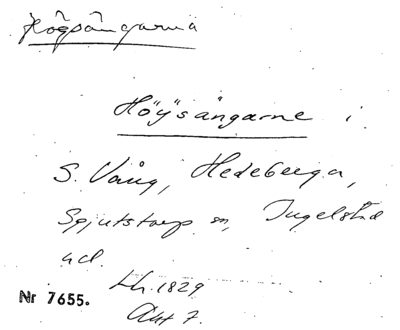 Högsångarna
Höÿsångarne i
S. Vång, Hedeberga,
Spjutstorp sn, Ingelstad
hd.
Lh. 1829
Akt 7.
Nr 7655.